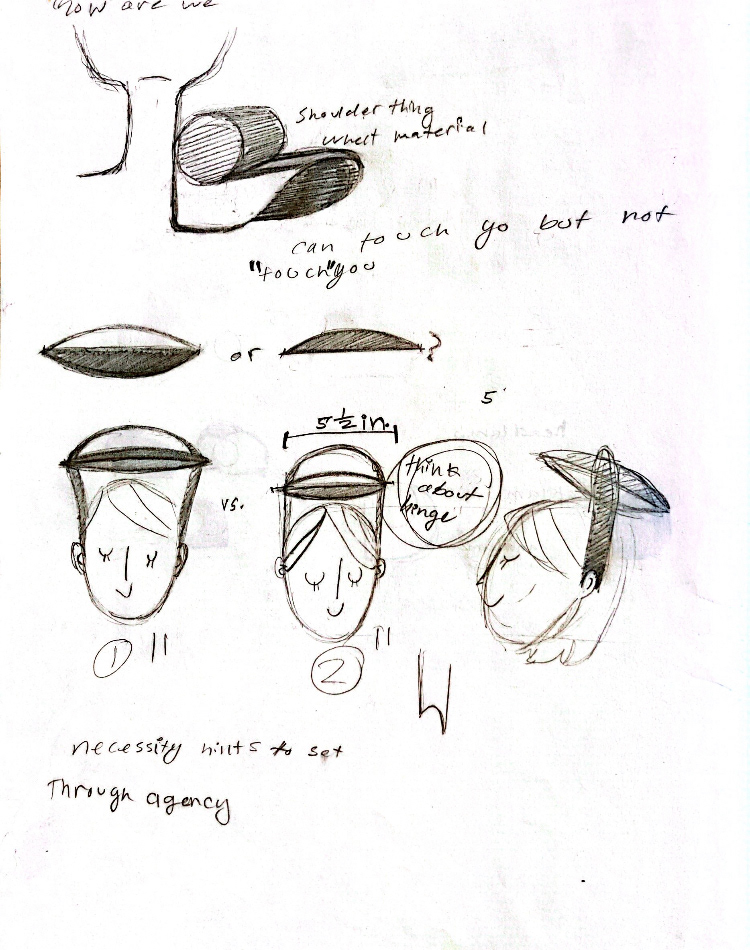 how are we
shoulder thing
what material
can touch yo but not
"touch" you
or
?
5'
5 1/2 in.
think
about
hinge
vs.
1
2
necessity hints to set
Through agency